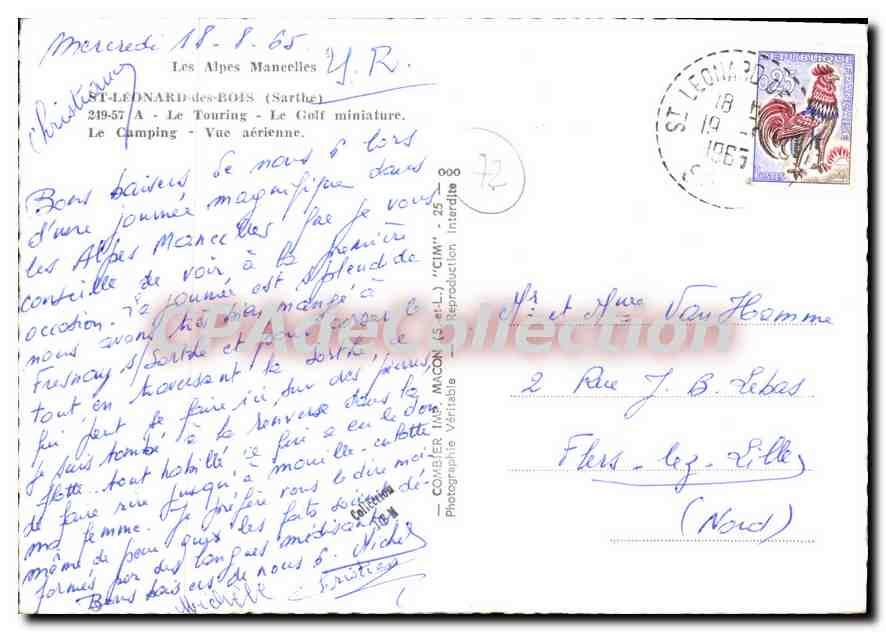 Mercredi 18-8-65.
Y.R.
Christiane
Les Alpes Mancelles
ST-LÉONARD-des-BOIS (Sarthe)
249-57 A - Le Touring - Le Golf miniature.
Le Camping - Vue aérienne.
Bons baisers de nous 6 lors
d'une journée magnifique dans
les Alpes Mancelles que je vous
conseille de voir, à la première
occasion. La journée est splendide
nous avons très bien mangé à
Fresnay s/Sarthe et pour corser le
tout, en traversant la Sarthe, ce
qui peut se faire ici, sur des pierres,
je suis tombé à la renverse dans la
flotte tout habillé ce qui a eu le don
de faire rire jusqu'à mouille-culotte
ma femme. Je préfère vous le dire moi-
même de peur que les faits soient dé-
formés par des langues médisantes
Bons baisers de nous 6. Michel
Michèle
COMBIER IMP. MACON (S-et-L.) "CIM" - 25 - 000
Photographie Véritable - Reproduction Interdite
72
ST LEONARD DE
18 H
19 -
1965
REPUBLIQUE FRANÇAISE
0,25
POSTES
Mr et Mme Van Hamme
2 Rue J. B. Lebas
Flers-lez-Lille
(Nord)
CPAdeCollection
Collection